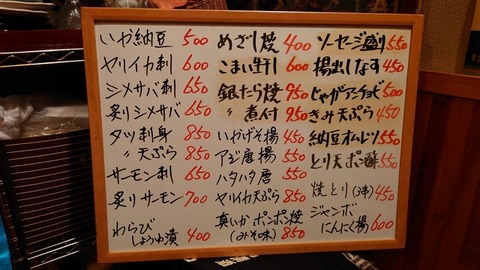 いか納豆 500
ヤリイカ刺 600
シメサバ刺 650
炙りシメサバ 650
タツ刺身 850
〃 天ぷら 850
サーモン刺 650
炙りサーモン 700
わらび
しょうゆ漬 400
めざし焼 400
こまい生干し 600
銀たら焼 950
〃 煮付 950
いかげそ揚 450
アジ唐揚 550
ハタハタ唐 550
ヤリイカ天ぷら 850
真いかポンポ焼
(みそ味) 850
ソーセージ盛り 550
揚出しなす 450
じゃがアンチョビ 500
きみ天ぷら 450
納豆オムレツ 550
とり天ポン酢 550
焼とり(3本) 450
ジャンボ
にんにく揚 600